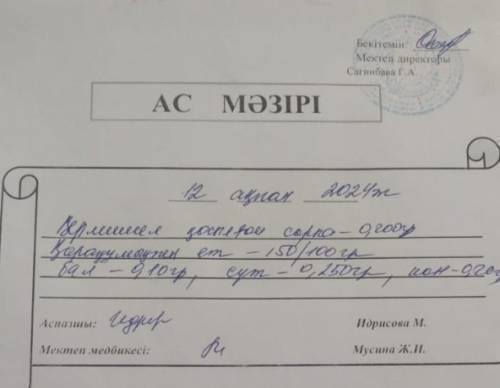 Бекітемін:
Мектеп директоры
Сагинбаева Г.А.
АС МӘЗІРІ
12 ақпан 2024ж
Вермишел қоспасы сорпа - 0,200гр
Қарақұмықпен ет - 150/100гр
бал - 0,10гр, сүт - 0,250гр, нан - 0,20гр
Аспазшы: Идрисова М.
Мектеп медбикесі: Мусина Ж.И.